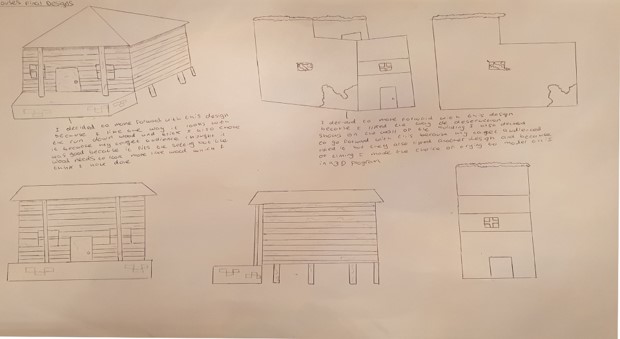 Final Designs
I decided to move forward with this design
because I like the way it looks with
the run down wood and brick I also chose
it because my target audience thought it
was good because it fits the setting but the
wood needs to look more like wood which I
have done
I decided to move forward with this design
because I liked the way of
shows on the wall of the building I also decided
to go forward with this because my target audience
liked it but they also liked another design and because
of timing I made the choice of trying to model all
in program